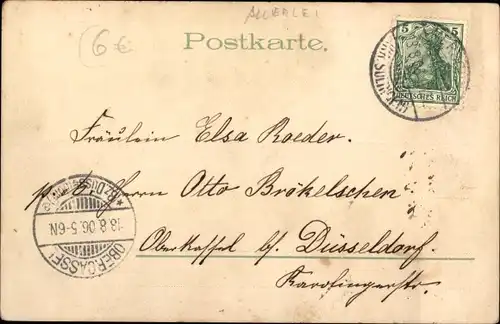 ALLERLEI
6 €
Postkarte.
5 5
DEUTSCHES REICH
Fräulein Elsa Roeder.
p. A. Herrn Otto Brökelschen
Oberkassel bf. Düsseldorf.
Karolingerstr.
BZ. DÜSSELDORF
18.8.06.5-6N
OBERCASSEL